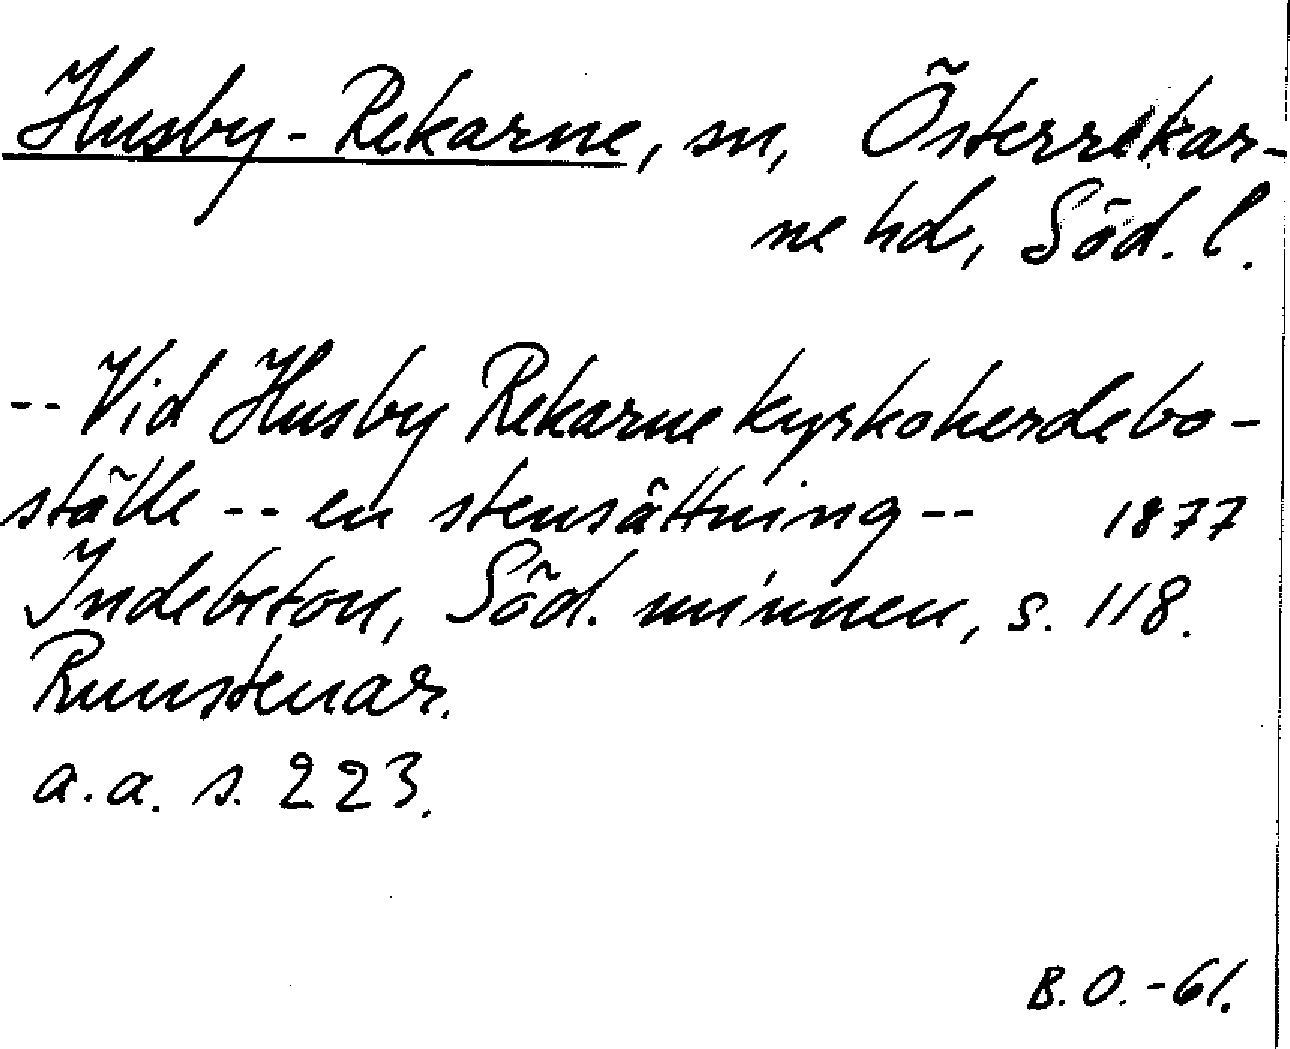 Husby-Rekarne, sn, Österrekar-
ne hd, Söd. l.
-- Vid Husby Rekarne kyrkoherdebo-
ställe -- en stensättning -- 1877
Indebetou, Söd. minnen, s. 118.
Runstenar.
a.a. s. 223.
B.O.-61.